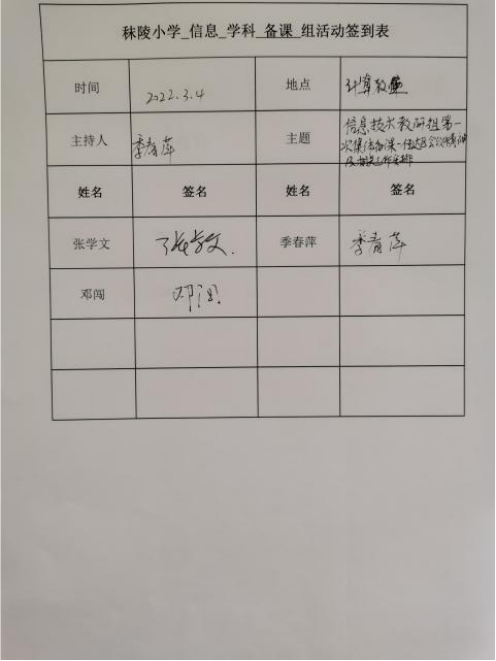 秣陵小学_信息_学科_备课_组活动签到表
时间 2022.3.4 地点 计算教室
主持人 季春萍 主题 信息技术教研组第一
次集体备课
姓名 签名 姓名 签名
张学文 张学文. 季春萍 季春萍
邓闯 邓闯